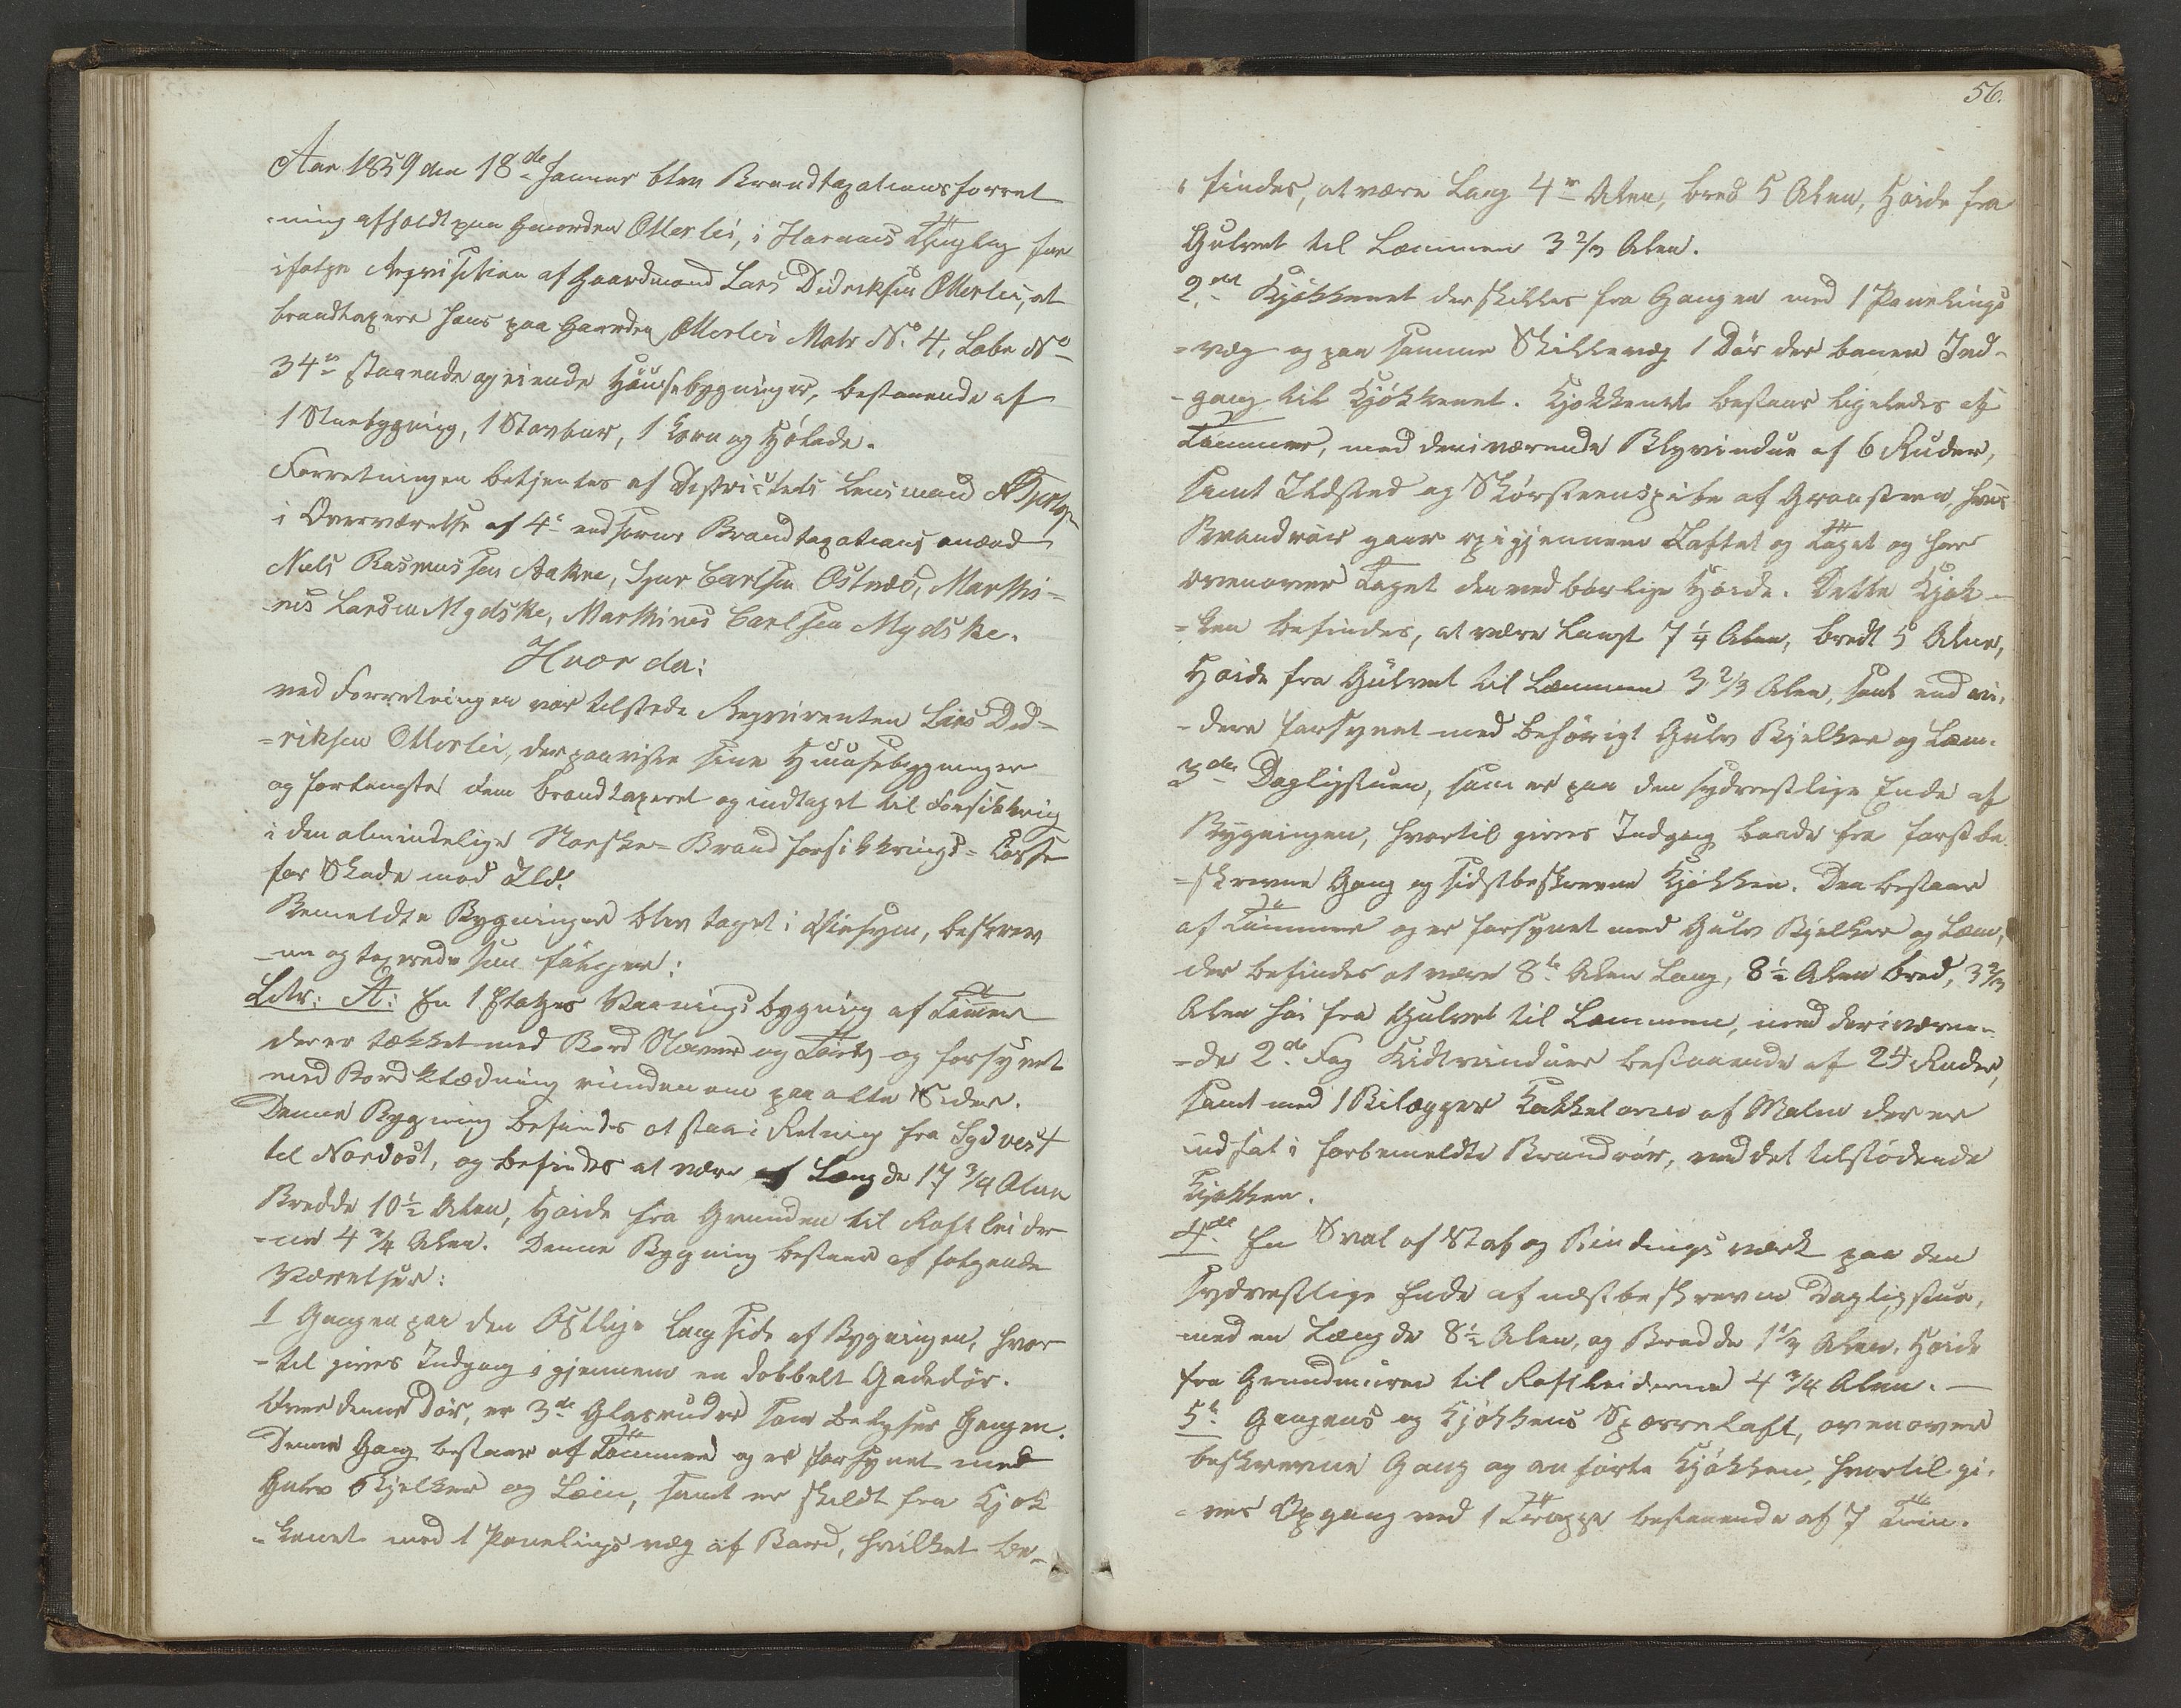 Aar 1859 den 18de Januar blev Brandtaxationsforret
-ning afholdt paa Gaarden Otterlei, i Harams Thinglag paa
ifølge Reqvisition af Gaardmand Lars Didriksen Otterlei, at
brandtaxere hans paa Gaarden Otterlei Matr No. 4, Løbe No
34 staaende og eiende Huusebygninger, bestaaende af
1 Stuebygning, 1 Stavbuur, 1 Korn og Hølade.
Forretningen betjentes af Districtets Lensmand
i Overværelse af 4 eedsorne Brandtaxations mænd
Niels Rasmussen Aakre, Sjur Carlsen Ostnæs, Marthi-
-nus Larsen Mydske, Marthinus Carlsen Mydske.
Hvor da:
ved Forretningen var tilstede Reqvirenten Lars Did-
-riksen Otterlei, der paaviste sine Huusebygninger
og forlangte dem brandtaxeret og indtaget til Forsikkring
i den almindelige Norske-Brandforsikkrings-Casse
for Skade mod Ild.
Bemeldte Bygninger blev taget i Øiesyn, beskrev
-ne og taxerede som følger:
Litr: A: En 1 Etages Vaaningsbygning af Tømmer
der er tækket med Bord Næver og Torv, og forsynet
med Bordklædning rundenom paa alle Sider.
Denne Bygning befindes at staa i Retning fra Sydvest
til Nordost, og befindes at være af Længde 17 3/4 Alen
Bredde 10 1/2 Alen, Høide fra Grunden til Raftleider
-ne 4 3/4 Alen. Denne Bygning bestaar af følgende
Værelser:
1 Gangen paa den Østlige Langside af Bygningen, hvor
-til gives Indgang igjennem en dobbelt Gadedør.
Over denne Dør, er 3de Glasruder som belyser Gangen.
Denne Gang bestaar af Tømmer og er forsynet med
Gulv Bjelker og Læm, samt er skildt fra Kjøk
-kenet med 1 Panelings væg af Bord, hvilket be-
56.
findes, at være Lang 4 Alen, bred 5 Alen, Høide fra
Gulvet til Læmmen 3 2/3 Alen.
2det Kjøkkenet der skilles fra Gangen med 1 Panelings
-væg og paa samme Skillevæg 1 Dør der baner Ind-
-gang til Kjøkkenet. Kjøkkenet bestaar ligeledes af
Tømmer, med deri værende Blyvindue af 6 Ruder,
samt Ildsted og Skorsteenspibe af Graasteen, hvis
Brandrør gaar op igjennem Loftet og Taget og har
ovenover Taget den ved børlige Høide. Dette Kjøk-
-ken befindes, at være Langt 7 1/4 Alen, bredt 5 Alen,
Høide fra Gulvet til Læmmen 3 2/3 Alen, samt end vi-
-dere forsynet med behørigt Gulv Bjelker og Læm.
3die Dagligstuen, som er paa den sydvestlige Ende af
Bygningen, hvortil gives Indgang baade fra først be
-skrevne Gang og sidstbeskrevne Kjøkken. Den bestaar
af Tømmer og er forsynet med Gulv Bjelker og Læm,
der befindes at være 8te Alen Lang, 8 1/2 Alen bred, 3 2/3
Alen høi fra Gulvet til Læmmen, med deri være-
-de 2de Fag Kidtvinduer bestaaende af 24 Ruder,
samt med 1 Bilægger Kakkelovn af Malm der er
indsat i forbemeldte Brandrør, ved det tilstødende
Kjøkken.
4de En Sval af Stav og Bindingsværk paa den
sydvestlige Ende af næstbeskrevne Dagligstue,
med en Længde 8 1/2 Alen, og Bredde 1 1/2 Alen. Høide
fra Grundmuren til Raftleiderne 4 3/4 Alen.
5te Gangens og Kjøkkens Sparreloft, ovenover
beskrevne Gang og anførte Kjøkken, hvortil gi-
-ves Opgang ved 1 Trappe bestaaende af 7 Trin.